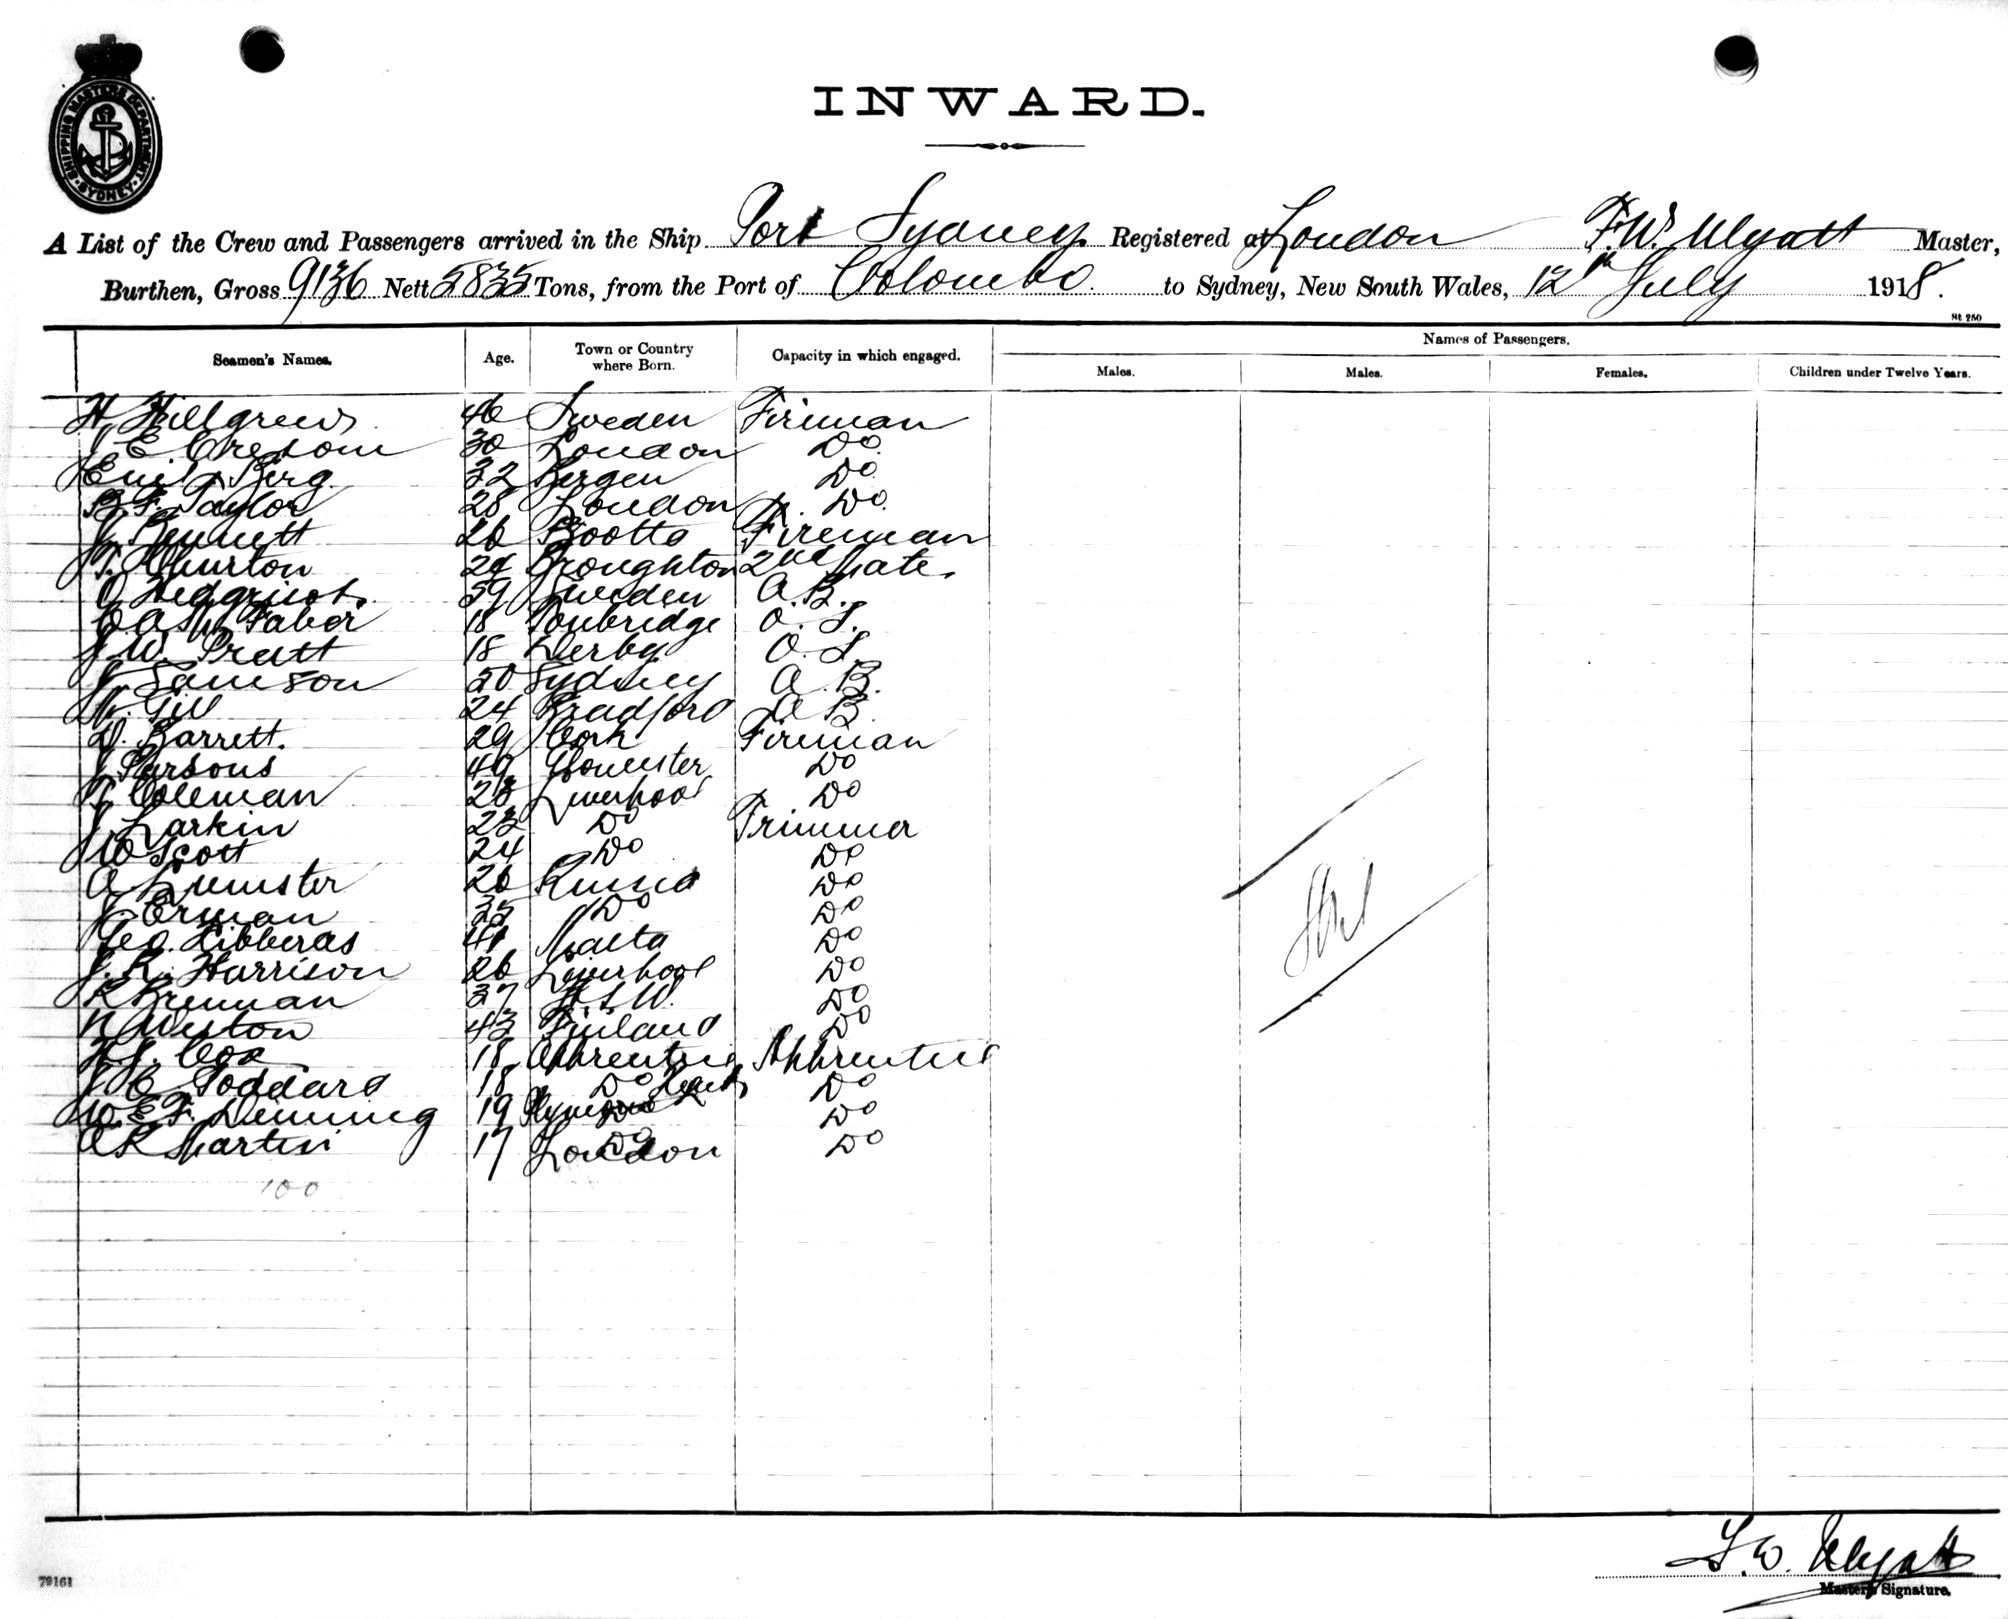 SHIPPING MASTERS DEPARTMENT SYDNEY
INWARD.
A List of the Crew and Passengers arrived in the Ship Port Sydney Registered at London F.W. Wyatt Master,
Burthen, Gross 9136 Nett 5835 Tons, from the Port of Colombo to Sydney, New South Wales, 12th July 1918.
St 250
Seamen's Names. Age. Town or Country where Born. Capacity in which engaged. Names of Passengers.
Males. Males. Females. Children under Twelve Years.
H. Hillgrew 46 Sweden Fireman
J E 30 London Do
Emil Berg 32 Bergen Do
B.F. Taylor 28 London Do
J Bennett 26 Bootle Fireman
T. Churton 29 Broughton 2nd Mate.
O 59 Sweden A.B.
Faber 18 Tonbridge O.S.
J.W. Pratt 18 Derby O.S.
J Samson 50 Sydney A.B.
W. Gill 24 Bradford A B
D. Barrett. 29 Cork Fireman
J Parsons 49 Gloucester Do
T. Coleman 28 Liverpool Do
J Larkin 23 Do Trimmer
W Scott 24 Do Do
A 26 Russia Do
J. Erman 35 Do Do
Geo. Libberas 41 Malta Do
J. R. Harrison 26 Liverpool Do
R Brennan 37 N.S.W. Do
N Weston 43 Finland Do
H.J. Cox 18 Apprentice Apprentice
J C Goddard 18 Do Do
W.E.F. Denning 19 Do
A R Martin 17 London Do
100
Nil
F.W. Wyatt
Master's Signature.
79161